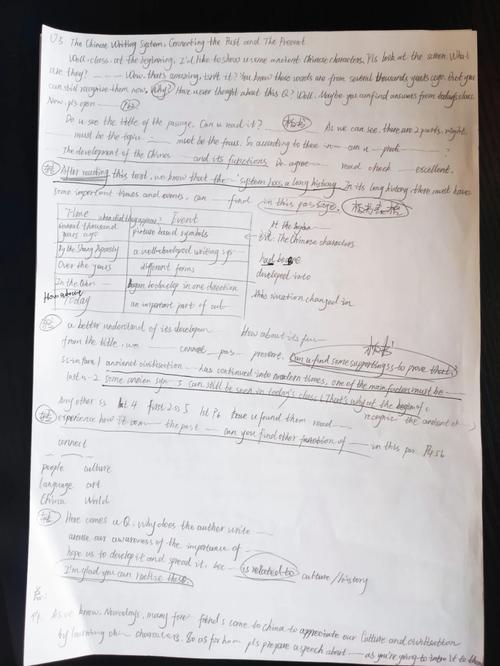 U3. The Chinese Writing System: Connecting the Past and The Present
Well, class, at the beginning, I'd like to show u some ancient Chinese characters. Pls look at the screen. What
are they? ---- Wow, that's amazing, isn't it? You know these words are from several thousands years ago. But you
can still recognize them now. Why? Have u ever thought about this Q? Well. Maybe you can find answers from today's class.
Now, pls open
Do u see the title of the passage. Can u read it? 板书 As we can see, there are 2 parts, right.
must be the topic must be the focus. So according to these can u
The development of the Chinese --- and its functions. Do agree --- read check --- excellent.
After reading this text, we know that the -- system has a long history. In its long history, there must have
some important times and events. can --- find --- in this passage. 板书表格
Time what did they appear? Event
several thousand years ago picture based symbols
By the Shang Dynasty a well-developed writing sys
Over the years different forms
In the Qin began to develop in one direction
How about Today an important part of cul
At the begin
The Chinese characters
had become
developed into
this situation changed in
a better understand of its developmen How about its fun
from the title, we --- connect pas -- present. Can u find some supporting ss to prove that? 板书
ss in para 1 ancient civilisation --- has continued into modern times, one of the main factors must be ---
last n-2 some ancien sym -- s can still be seen in today's class (That's why at the begin of c
Any other ss P4 first 2.0s 5 have u found them read --- recognize the ancient ch
experience how it conn --- the past --- can you find other function of --- in this par P4 5 6
connect
people culture
language art
China World
Here comes a Q. why does the author write ---
arouse our awareness of the importance of --
hope us to develop it and spread it. bec -- is related to culture/history
I'm glad you can realize these.
As we know, Nowadays, many fore friends come to china to appreciate our culture and civilisation
by learning chi --- characters. So as for hom pls prepare a speech about --- as you're going to intro it to the